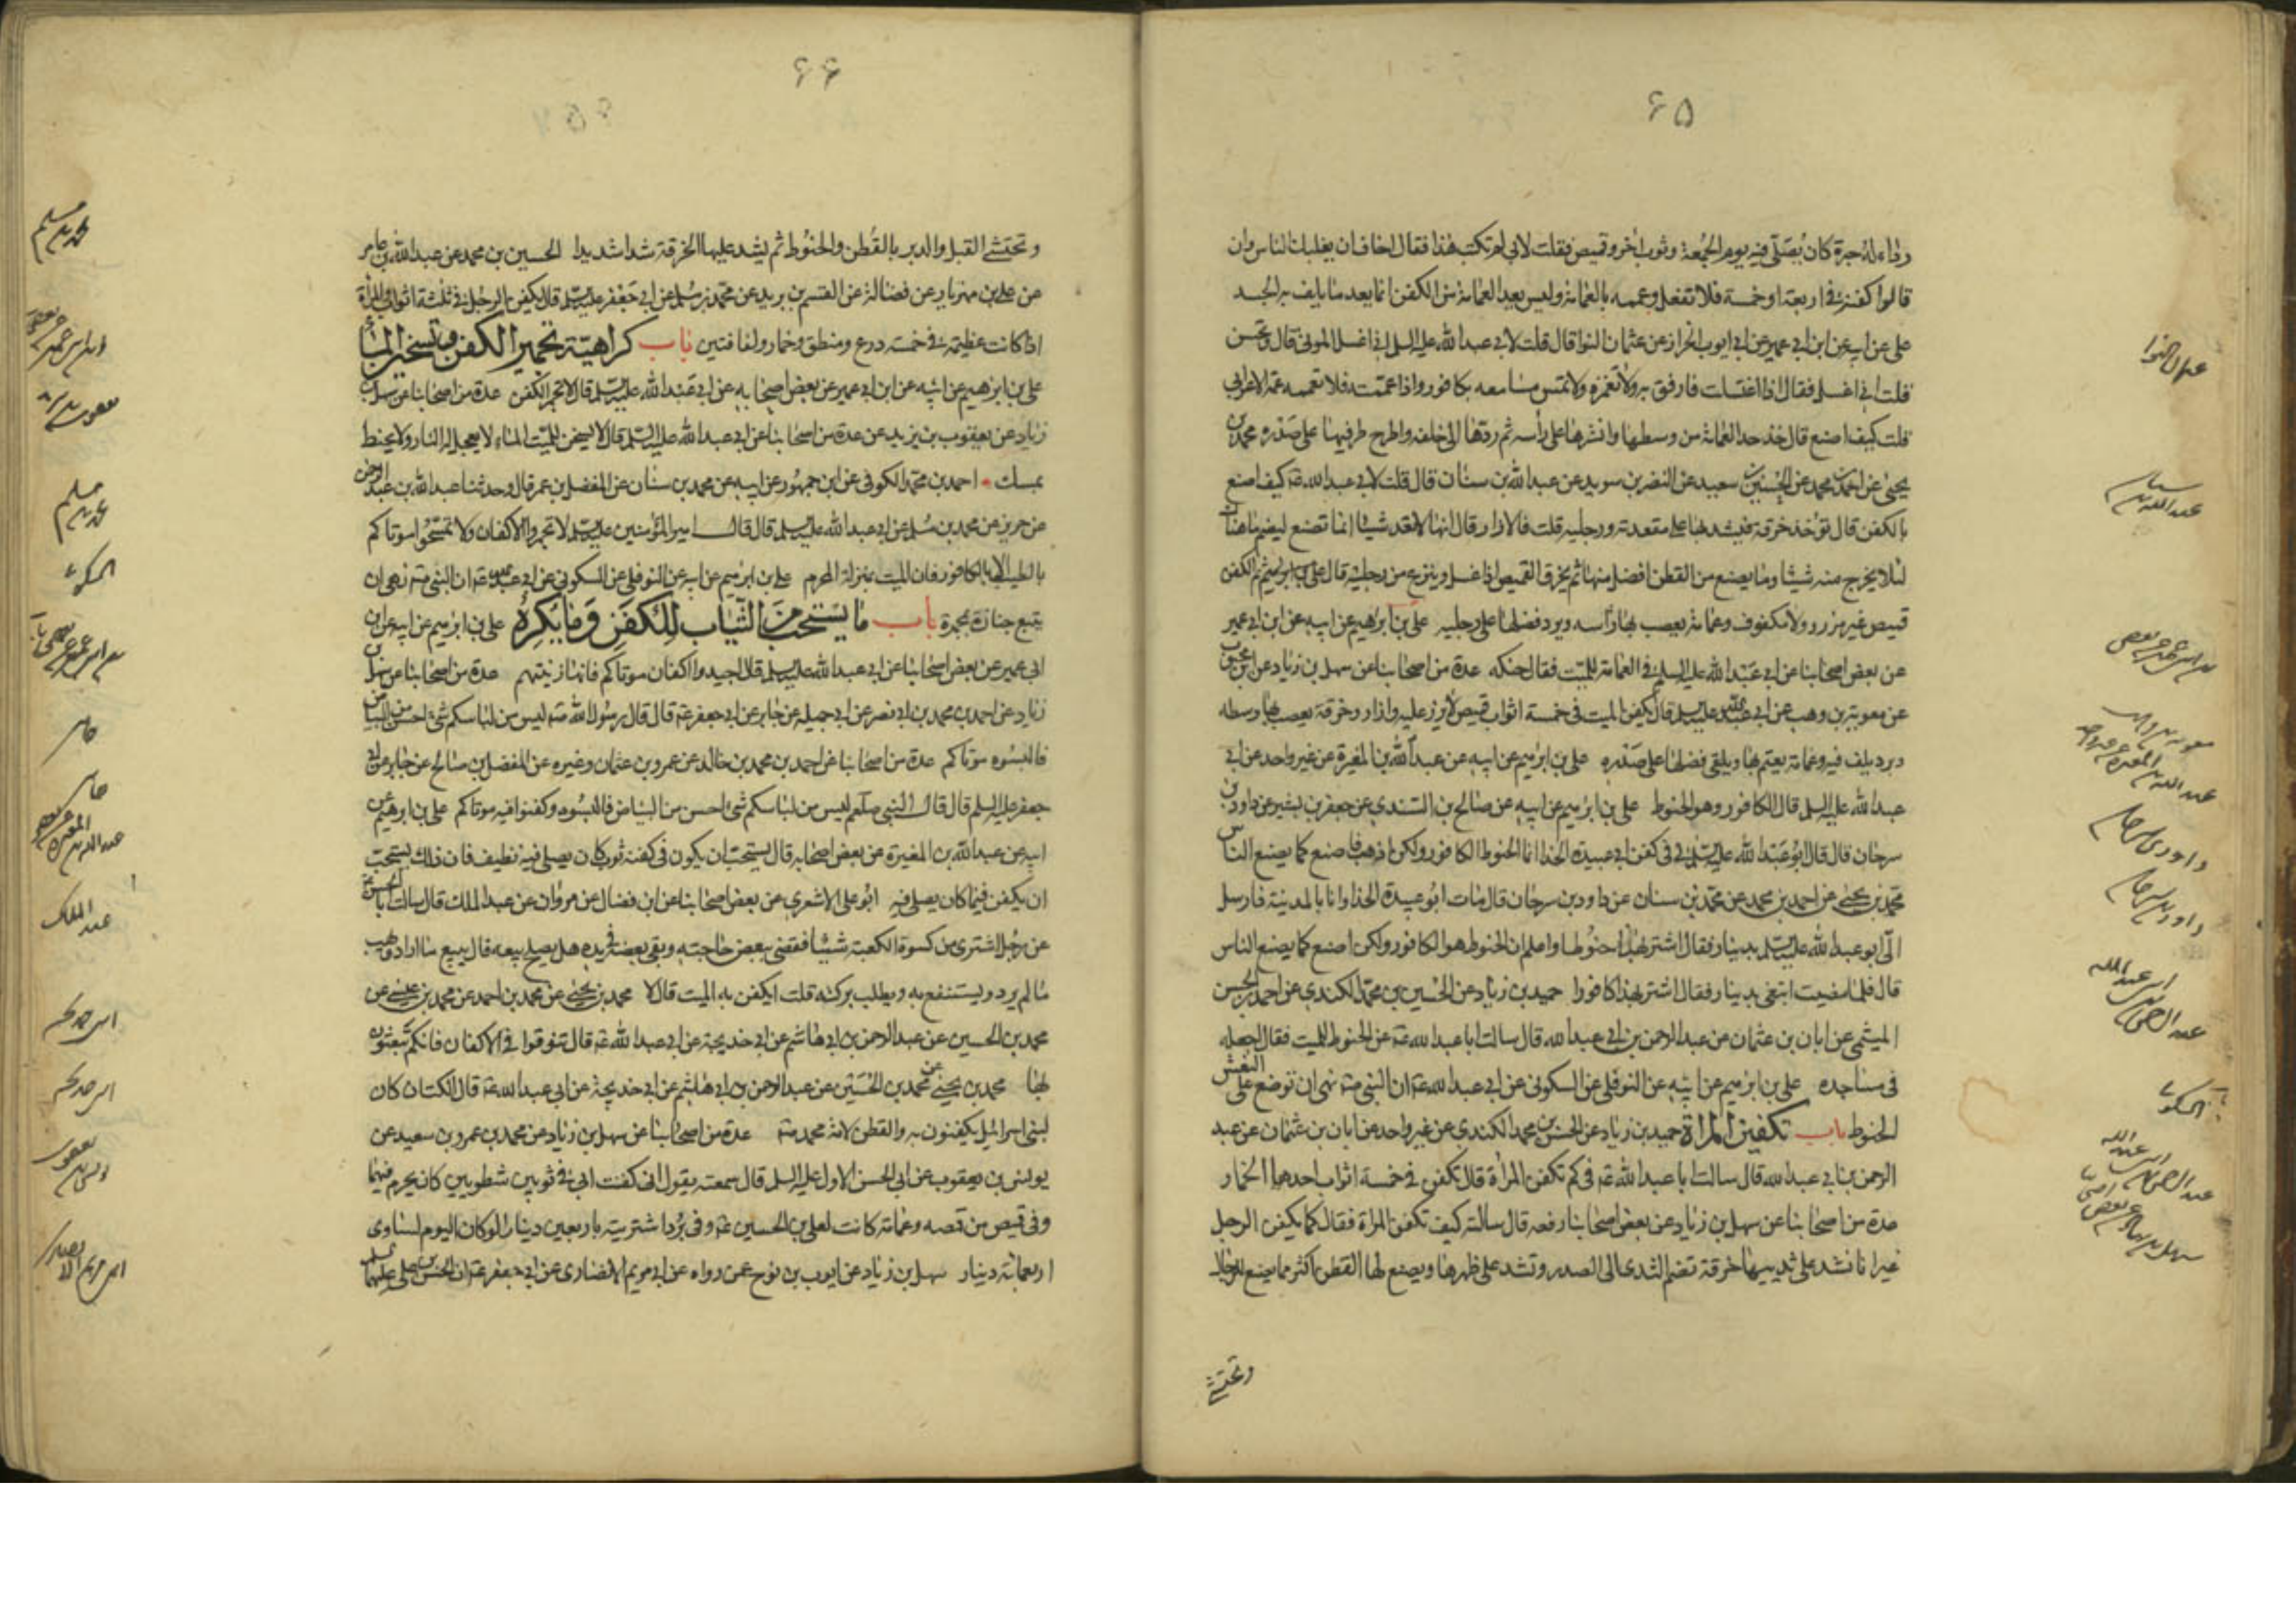 ۶۵
رداء له حبرة كان يصلى فيه يوم الجمعة وثوب اخر وقميص فقلت لابى لم تكتب هذا فقال اخاف ان يغلبك الناس وان
قالوا كفنه فى اربعة او خمسة فلا تفعل وعممه بالعمامة وليس يعد العمامة من الكفن انما يعد ما يلف به الجسد
على عن ابيه عن ابن ابى عمير عن ابى ايوب الخزاز عن عثمان النوا قال قلت لابى عبد الله عليه السلم انى اغسل الموتى قال وتحسن
قلت انى اغسل فقال اذا اغسلت فارفق به ولا تغمزه ولا تمس مسامعه بكافور واذا عممته فلا تعممه عمة الاعرابى
قلت كيف اصنع قال خذ حد العمامة من وسطها وانشرها على رأسه ثم ردها الى خلفه واطرح طرفيها على صدره محمد بن
يحيى عن احمد بن محمد عن الحسين بن سعيد عن النضر بن سويد عن عبد الله بن سنان قال قلت لابى عبد الله عه كيف اصنع
بالكفن قال تؤخذ خرقة فيشد بها على مقعدته ورجليه قلت فالازار قال انها لا تعد شيئا انما تصنع ليضم ما هناك
لئلا يخرج منه شيئا وما يصنع من القطن افضل منها ثم يخرق القميص اذا غسل وينزع من رجليه قال ثم الكفن
قميص غير مزرور ولا مكفوف وعمامة يعصب بها رأسه ويرد فضلها على رجليه على بن ابرهيم عن ابيه عن ابن ابى عمير
عن بعض اصحابنا عن ابى عبد الله عليه السلم فى العمامة للميت فقال حنكه عدة من اصحابنا عن سهل بن زياد عن ابن محبوب
عن معوية بن وهب عن ابى عبد الله عليه السلم قال يكفن الميت فى خمسة اثواب قميص لا يزر عليه وازار وخرقة يعصب بها وسطه
وبرد يلف فيه وعمامة يعتم بها ويلقى فضلها على صدره على بن ابرهيم عن ابيه عن عبد الله بن المغيرة عن غير واحد عن ابى
عبد الله عليه السلم قال الكافور وهو الحنوط على بن ابرهيم عن ابيه عن صالح بن السندى عن جعفر بن بشير عن داود بن
سرحان قال قال ابو عبد الله عليه السلم لى فى كفن ابى عبيدة الحذا انما الحنوط الكافور ولكن اذهب فاصنع كما يصنع الناس
محمد بن يحيى عن احمد بن محمد عن محمد بن سنان عن داود بن سرحان قال مات ابو عبيدة الحذا وانا بالمدينة فارسل
الى ابو عبد الله عليه السلم بدينار فقال اشتر بهذا حنوطا واعلم ان الحنوط هو الكافور ولكن اصنع كما يصنع الناس
قال فلما مضيت اتبعنى بدينار فقال اشتر بهذا كافورا حميد بن زياد عن الحسين بن محمد الكندى عن احمد بن الحسن
الميثمى عن ابان بن عثمان عن عبد الرحمن بن ابى عبد الله قال سالت ابا عبد الله عه عن الحنوط للميت فقال اجعله
فى مساجده على بن ابرهيم عن ابيه عن النوفلى عن السكونى عن ابى عبد الله عه ان النبى صه نهى ان توضع على النعش
الحنوط باب تكفين المراة حميد بن زياد عن الحسن بن محمد الكندى عن غير واحد عن ابان بن عثمان عن عبد
الرحمن بن ابى عبد الله قال سالت ابا عبد الله عه فى كم تكفن المراة قال تكفن فى خمسة اثواب احدها الخمار
عدة من اصحابنا عن سهل بن زياد عن بعض اصحابنا رفعه قال سالته كيف تكفن المراة فقال كما يكفن الرجل
غير انا نشد على ثدييها خرقة تضم الثدى الى الصدر وتشد على ظهرها ويصنع لها القطن اكثر مما يصنع للرجال
وتحتشى
عثمان النوا
عبد الله بن سنان
داود بن سرحان
داود بن سرحان
السكونى
۶۶
وتحتشى القبل والدبر بالقطن والحنوط ثم يشد عليها الخرقة شدا شديدا الحسين بن محمد عن عبد الله بن عامر
عن على بن مهزيار عن فضالة عن القسم بن بريد عن محمد بن مسلم عن ابى جعفر عليه السلم قال يكفن الرجل فى ثلثة اثواب والمرأة
اذا كانت عظيمة فى خمسة درع ومنطق وخمار ولفافتين باب كراهية تجمير الكفن وتسخين الماء
على بن ابرهيم عن ابيه عن ابن ابى عمير عن بعض اصحابه عن ابى عبد الله عليه السلم قال لا تجمر الكفن عدة من اصحابنا عن سهل بن
زياد عن يعقوب بن يزيد عن عدة من اصحابنا عن ابى عبد الله عليه السلم قال لا يسخن للميت الماء لا يعجل له النار ولا يحنط
بمسك احمد بن محمد الكوفى عن ابن جمهور عن ابيه عن محمد بن سنان عن المفضل بن عمر قال وحدثنا عبد الله بن عبد الرحمن
عن حريز عن محمد بن مسلم عن ابى عبد الله عليه السلم قال قال امير المؤمنين عليه السلم لا تجمروا الاكفان ولا تمسحوا موتاكم
بالطيب الا بالكافور فان الميت بمنزلة المحرم على بن ابرهيم عن ابيه عن النوفلى عن السكونى عن ابى عبد الله عه ان النبى صه نهى ان
يتبع جنازة بمجمرة باب ما يستحب من الثياب للكفن وما يكره على بن ابرهيم عن ابيه عن ابن
ابى عمير عن بعض اصحابنا عن ابى عبد الله عليه السلم قال اجيدوا اكفان موتاكم فانها زينتهم عدة من اصحابنا عن سهل بن
زياد عن احمد بن محمد بن ابى نصر عن ابى جميله عن جابر عن ابى جعفر عه قال قال رسول الله صه ليس من لباسكم شئ احسن من البياض
فالبسوه موتاكم عدة من اصحابنا عن احمد بن محمد بن خالد عن عمرو بن عثمان وغيره عن المفضل بن صالح عن جابر عن ابى
جعفر عليه السلم قال قال النبى صلعم ليس من لباسكم شئ احسن من البياض فالبسوه وكفنوا فيه موتاكم على بن ابرهيم عن
ابيه عن عبد الله بن المغيرة عن بعض اصحابه قال يستحب ان يكون فى كفنه ثوب كان يصلى فيه نظيف فان ذلك يستحب
ان يكفن فيما كان يصلى فيه ابو على الاشعرى عن بعض اصحابنا عن ابن فضال عن مروان عن عبد الملك قال سالت ابا الحسن عه
عن رجل اشترى من كسوة الكعبة شيئا فقضى ببعض حاجته وبقى بعضه فى يده هل يصلح بيعه قال يبيع ما اراد ويهب
ما لم يرد ويستنفع به ويطلب بركته قلت ايكفن به الميت قال لا محمد بن يحيى عن محمد بن احمد عن محمد بن عيسى عن
محمد بن الحسين عن عبد الرحمن بن ابى هاشم عن ابى خديجة عن ابى عبد الله عه قال تنوقوا فى الاكفان فانكم تبعثون
بها محمد بن يحيى عن محمد بن الحسين عن عبد الرحمن بن ابى هاشم عن ابى خديجة عن ابى عبد الله عه قال الكتان كان
لبنى اسرائيل يكفنون به والقطن لامة محمد صه عدة من اصحابنا عن سهل بن زياد عن محمد بن عمرو بن سعيد عن
يونس بن يعقوب عن ابى الحسن الاول عليه السلم قال سمعته يقول انى كفنت ابى فى ثوبين شطويين كان يحرم فيهما
وفى قميص من قمصه وعمامة كانت لعلى بن الحسين عه وفى برد اشتريته باربعين دينارا لو كان اليوم لساوى
اربعمائة دينار سهل بن زياد عن ايوب بن نوح عمن رواه عن ابى مريم الانصارى عن ابى جعفر عه ان الحسن بن على عليهما السلم
محمد بن مسلم
محمد بن مسلم
السكونى
جابر
جابر
عبد الملك